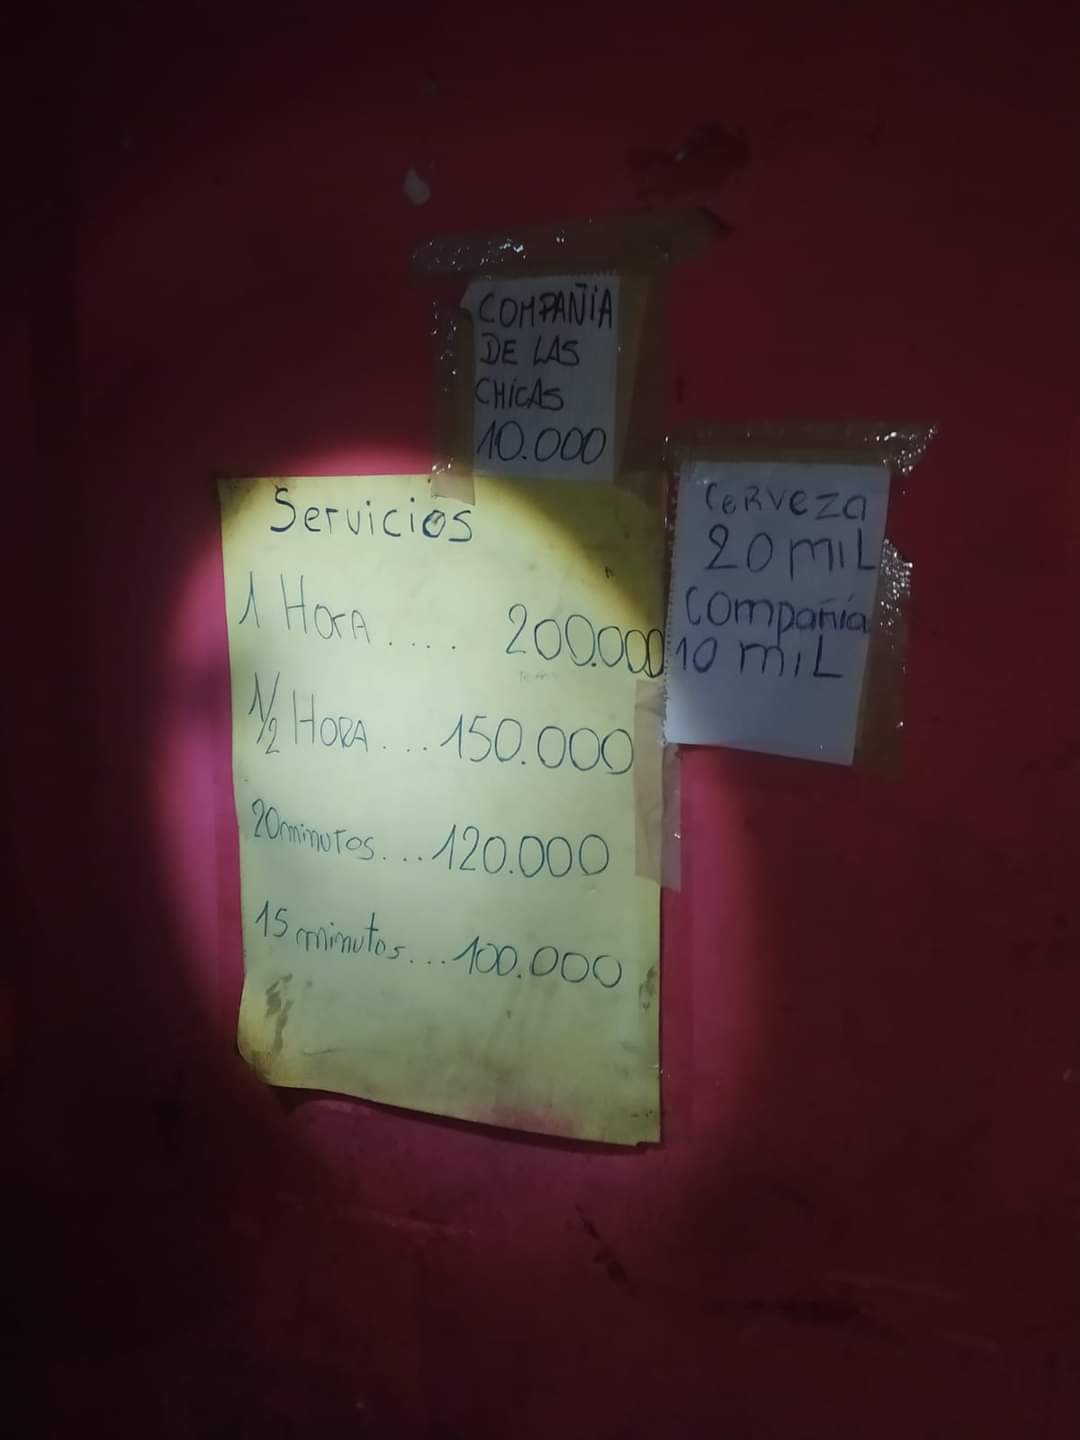 COMPAÑIA
DE LAS
CHICAS
10.000
Servicios
1 HORA .... 200.000
1/2 HORA ....150.000
20minutos...120.000
15 minutos...100.000
CeRVeZA
20 miL
Compañía
10 miL